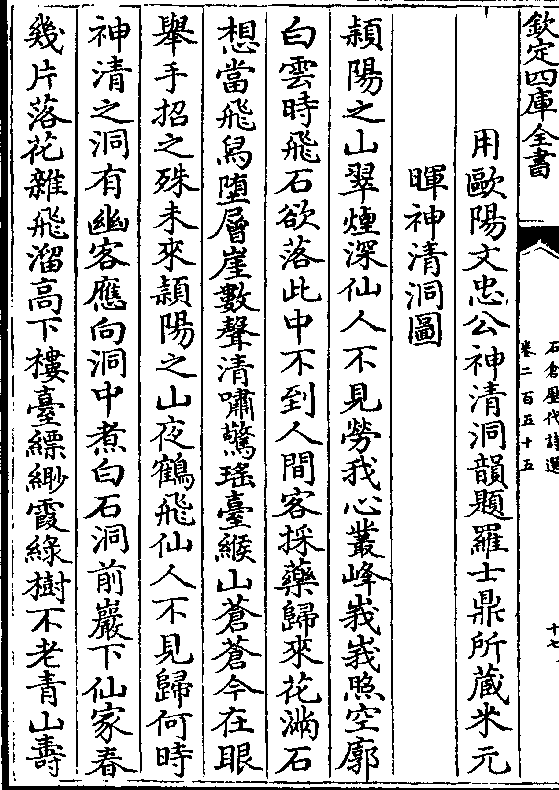 欽定四庫全書
石倉歷代詩選
卷二百五十五
十七
用歐陽文忠公神清洞韻題羅士鼎所蔵米元
暉神清洞圖
頴陽之山翠煙深仙人不見勞我心叢峰峩峩照空廓
白雲時飛石欲落此中不到人間客採藥歸來花滿石
想當飛舄堕層崖數聲清嘯驚瑤臺緱山蒼蒼今在眼
舉手招之殊未來頴陽之山夜鶴飛仙人不見歸何時
神清之洞有幽客應向洞中煮白石洞前巖下仙家春
幾片落花雜飛溜高下樓臺縹緲霞綠樹不老青山壽